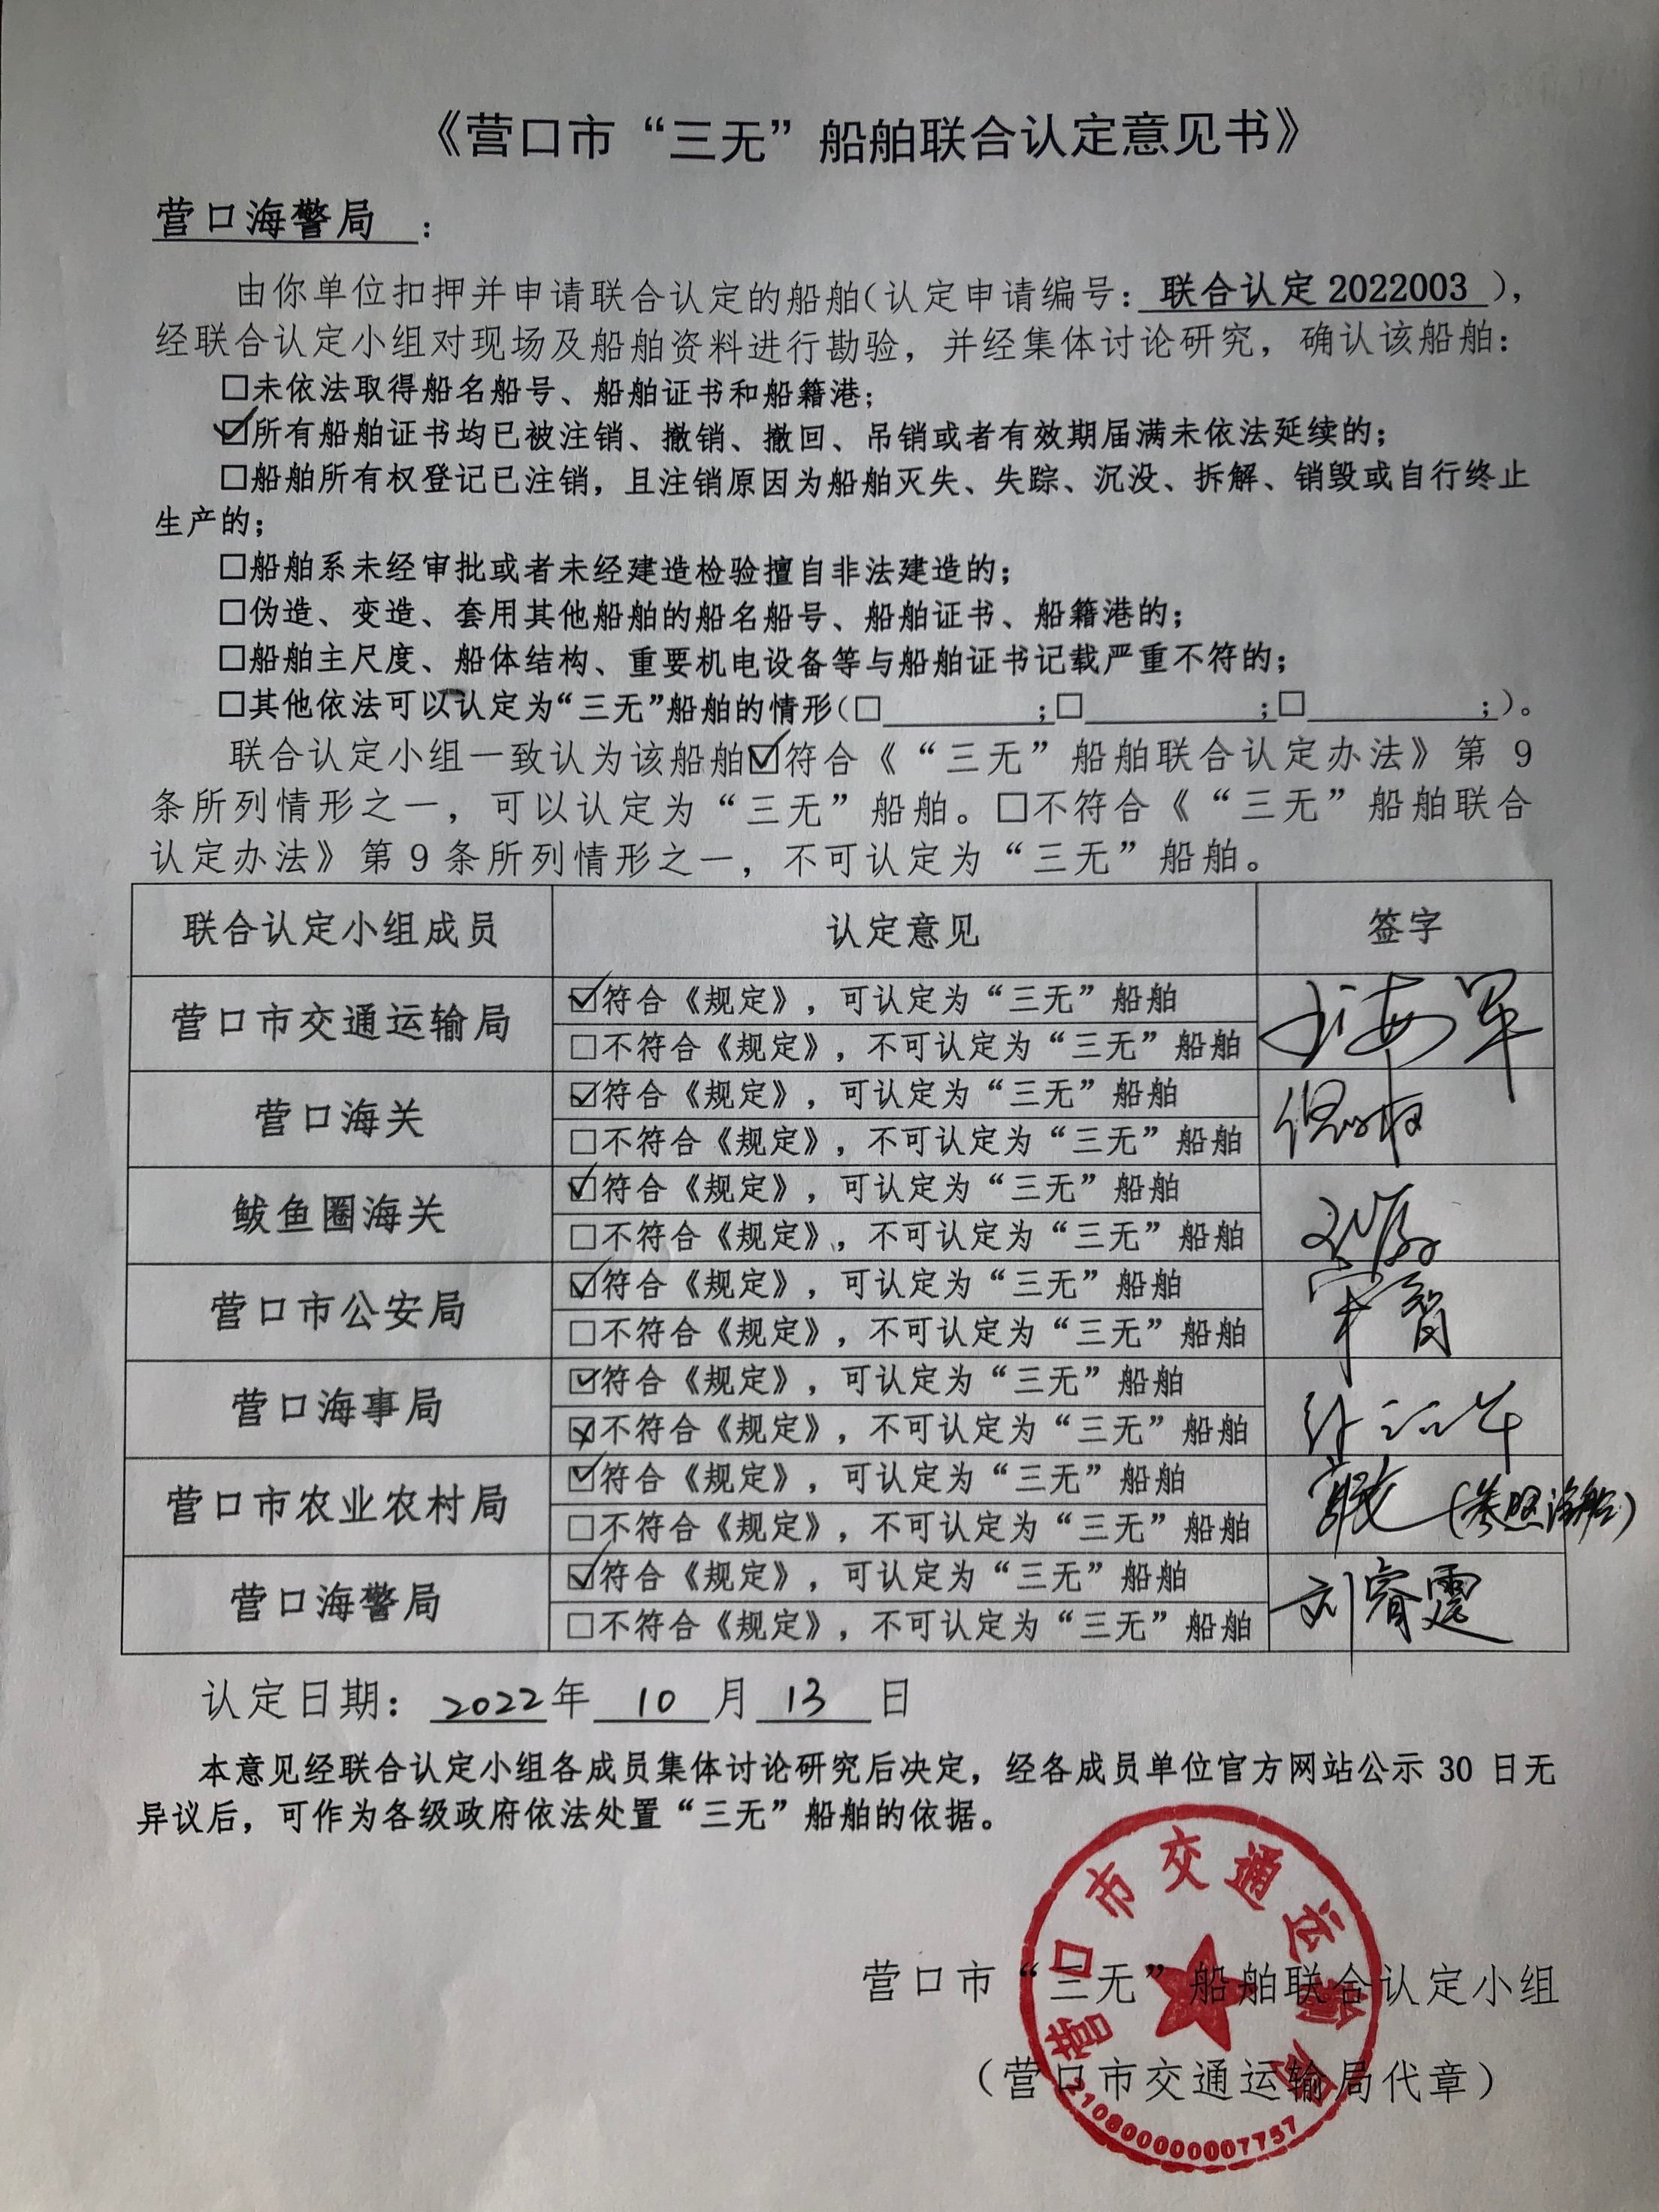 《营口市“三无”船舶联合认定意见书》
营口海警局 ：
由你单位扣押并申请联合认定的船舶(认定申请编号: 联合认定 2022003 ),
经联合认定小组对现场及船舶资料进行勘验，并经集体讨论研究，确认该船舶：
☐未依法取得船名船号、船舶证书和船籍港；
☑所有船舶证书均已被注销、撤销、撤回、吊销或者有效期届满未依法延续的；
☐船舶所有权登记已注销，且注销原因为船舶灭失、失踪、沉没、拆解、销毁或自行终止
生产的；
☐船舶系未经审批或者未经建造检验擅自非法建造的；
☐伪造、变造、套用其他船舶的船名船号、船舶证书、船籍港的；
☐船舶主尺度、船体结构、重要机电设备等与船舶证书记载严重不符的；
☐其他依法可以认定为“三无”船舶的情形(☐________;☐________;☐________;)。
联合认定小组一致认为该船舶☑符合《“三无”船舶联合认定办法》第 9
条所列情形之一，可以认定为“三无”船舶。☐不符合《“三无”船舶联合
认定办法》第 9 条所列情形之一，不可认定为“三无”船舶。
联合认定小组成员 认定意见 签字
营口市交通运输局 ☑符合《规定》，可认定为“三无”船舶
☐不符合《规定》，不可认定为“三无”船舶
营口海关 ☑符合《规定》，可认定为“三无”船舶
☐不符合《规定》，不可认定为“三无”船舶
鲅鱼圈海关 ☑符合《规定》，可认定为“三无”船舶
☐不符合《规定》，不可认定为“三无”船舶
营口市公安局 ☑符合《规定》，可认定为“三无”船舶 宋智
☐不符合《规定》，不可认定为“三无”船舶
营口海事局 ☑符合《规定》，可认定为“三无”船舶
☒不符合《规定》，不可认定为“三无”船舶
营口市农业农村局 ☑符合《规定》，可认定为“三无”船舶 (参照海船)
☐不符合《规定》，不可认定为“三无”船舶
营口海警局 ☑符合《规定》，可认定为“三无”船舶 刘睿霆
☐不符合《规定》，不可认定为“三无”船舶
认定日期： 2022 年 10 月 13 日
本意见经联合认定小组各成员集体讨论研究后决定，经各成员单位官方网站公示 30 日无
异议后，可作为各级政府依法处置“三无”船舶的依据。
营口市“三无”船舶联合认定小组
（营口市交通运输局代章）
营口市交通运输局
2108000000007757